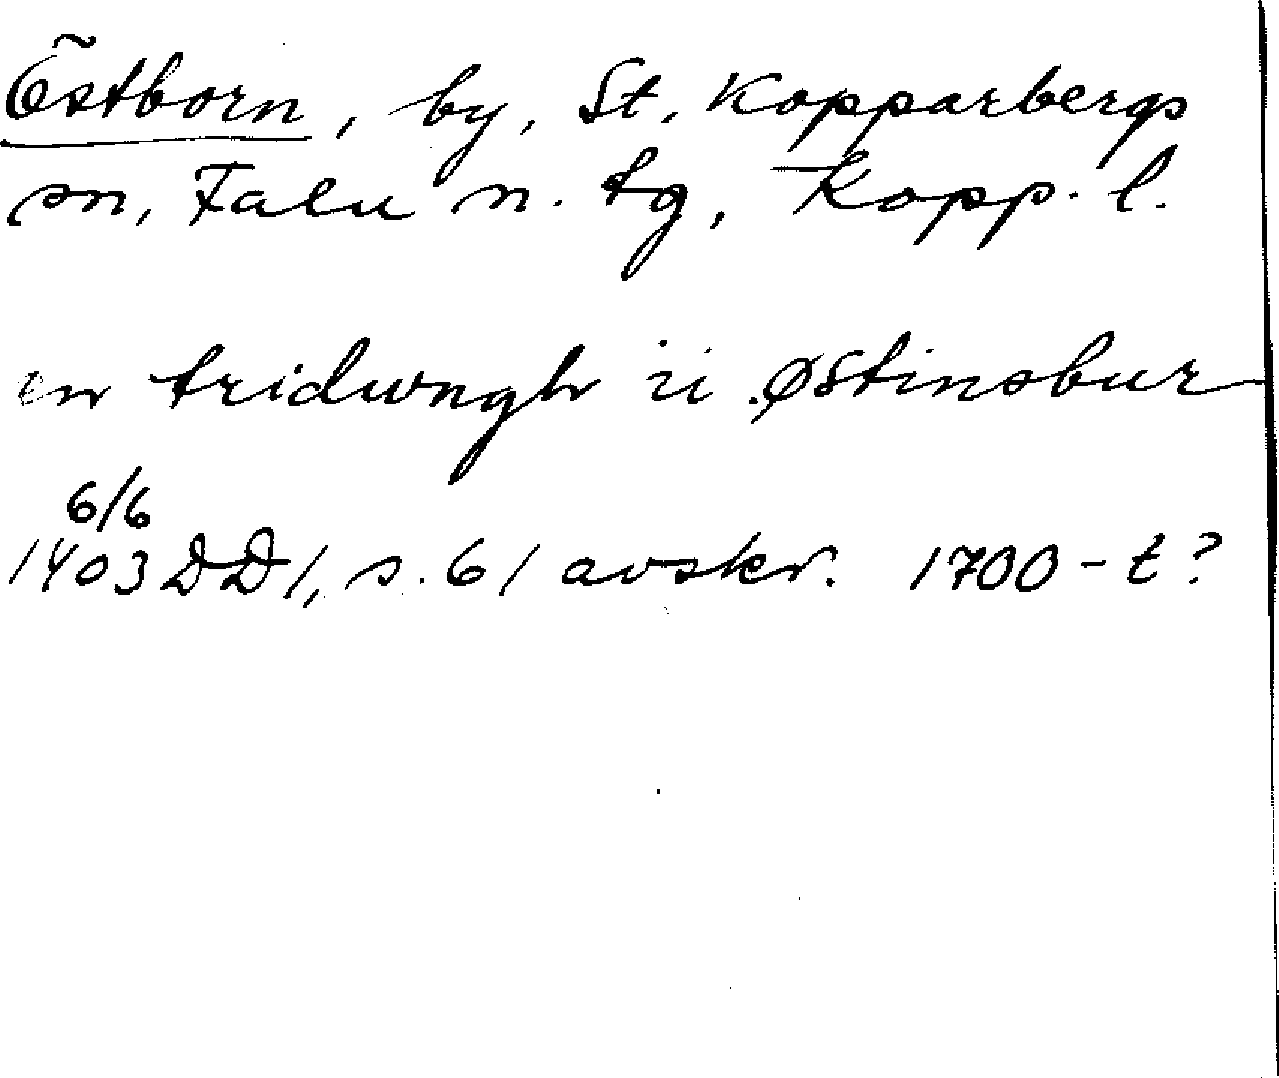 Östborn, by, St. Kopparbergs
sn, Falu n. tg, Kopp. l.
en tridwngh ii Østinsbur
6/6
1403 DD1, s. 61 avskr. 1700-t?